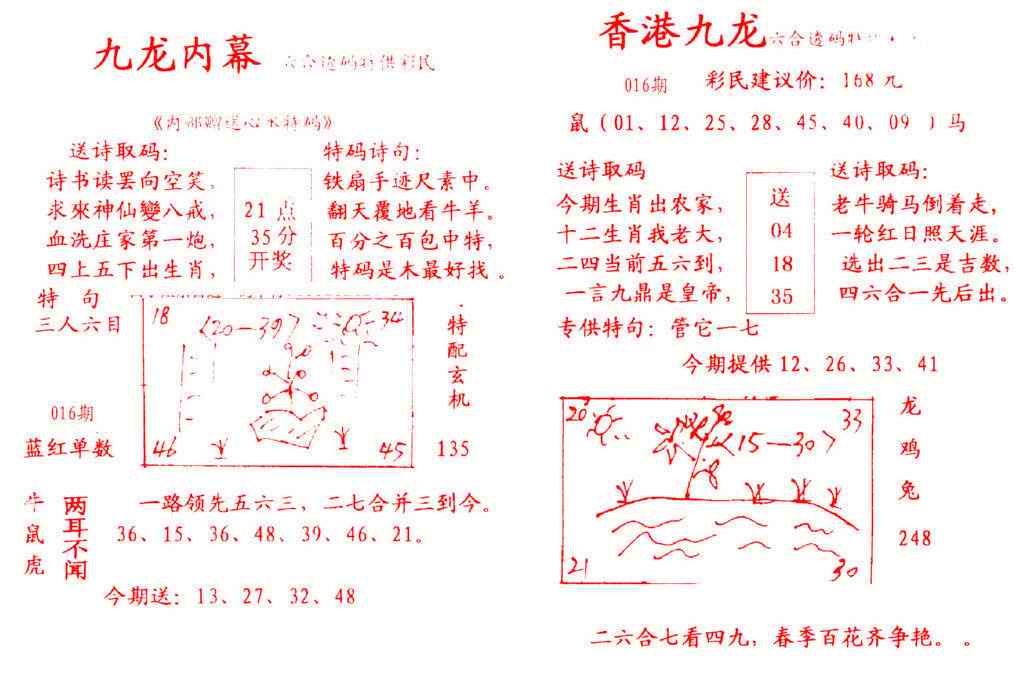 九龙内幕 六合透码特供彩民
《内部赠送心水特码》
送诗取码：
诗书读罢向空笑，
求來神仙變八戒，
血洗庄家第一炮，
四上五下出生肖，
21点
35分
开奖
特码诗句：
铁扇手迹尺素中。
翻天覆地看牛羊。
百分之百包中特，
特码是木最好找。
特 句
三人六目
016期
蓝红单数
18
〈20—39〉
34
46
45
特配玄机
135
牛鼠虎
两耳不闻
一路领先五六三，二七合并三到今。
36、15、36、48、39、46、21。
今期送：13、27、32、48
香港九龙 六合透码特
016期 彩民建议价：168元
鼠（01、12、25、28、45、40、09 ）马
送诗取码
今期生肖出农家，
十二生肖我老大，
二四当前五六到，
一言九鼎是皇帝，
送
04
18
35
送诗取码：
老牛骑马倒着走，
一轮红日照天涯。
选出二三是吉数，
四六合一先后出。
专供特句：管它一七
今期提供12、26、33、41
20
33
〈15—30〉
21
30
龙
鸡
兔
248
二六合七看四九，春季百花齐争艳。。